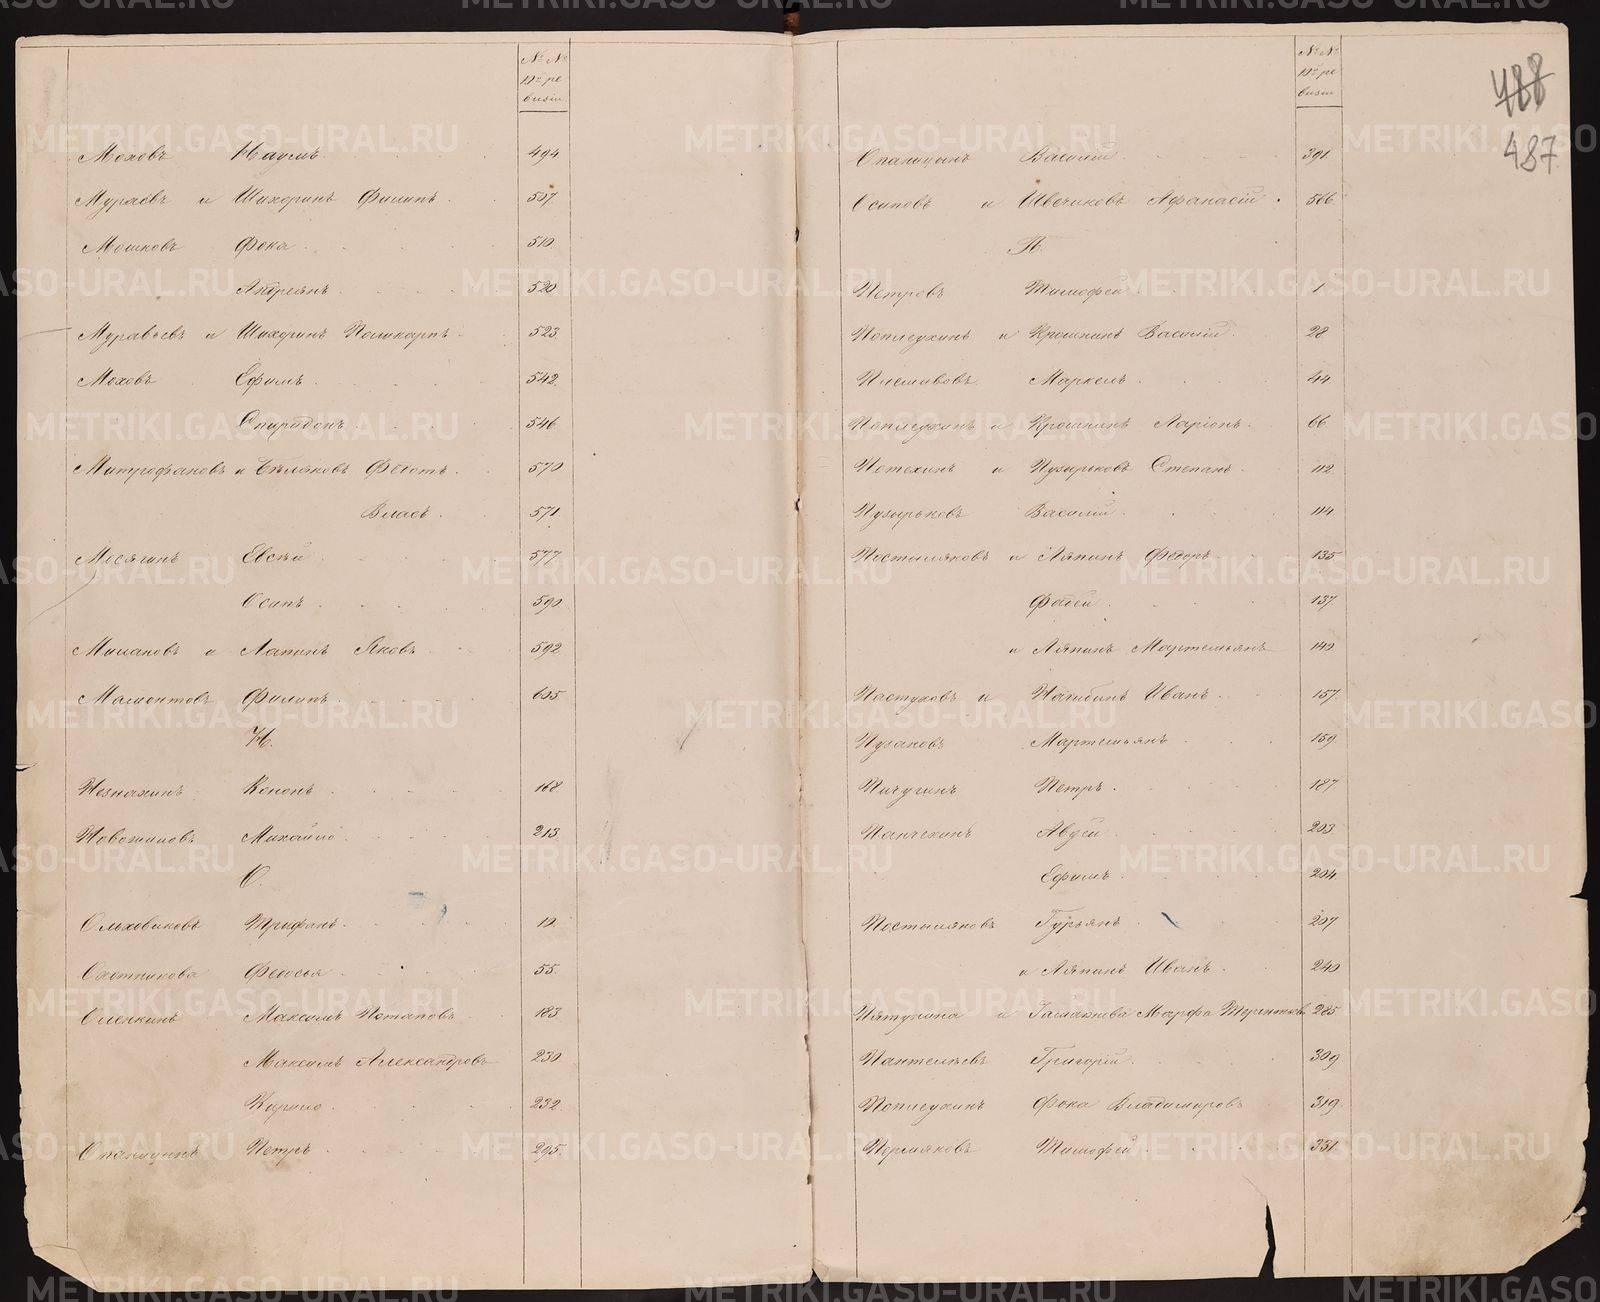 № № 10й ре визiи
Моховъ Наумъ 494
Мураевъ и Шихринъ Филипъ 507
Мошковъ Фока 510
Андреянъ 520
Муравьевъ и Шихринъ Поликарпъ 523
Моховъ Ефимъ 542
Спиридонъ 546
Митрофановъ и Бѣляковъ Федотъ 570
Власъ 571
Мосягинъ Евсѣй 577
Осипъ 590
Милановъ и Лапинъ Яковъ 592
Мамонтовъ Филипъ 605
Н.
Незнахинъ Кононъ 168
Новожиловъ Михайло 213
О.
Ольховиковъ Трифанъ 10
Охотникова Федосья 55
Оленкинъ Максимъ Потаповъ 183
Максимъ Александровъ 230
Карпло 232
Опалицынъ Петръ 295
№ № 10й ре визiи
488
487
Опалицынъ Василiй 391
Осиповъ и Швечиковъ Афанасiй 566
П.
Петровъ Тимофей 1
Поплеухинъ и Крошнинъ Василiй 28
Письмиковъ Маркелъ 44
Поплеухинъ и Крошнинъ Ларiонъ 66
Потехинъ и Пузырьковъ Степанъ 112
Пузырьковъ Василiй 114
Постниляковъ и Ляпинъ Федоръ 135
Фадей 137
и Ляпинъ Мартемьянъ 140
Пастуховъ и Нагибинъ Иванъ 157
Пузановъ Мартемьянъ 159
Пичугинъ Петръ 187
Панчехинъ Авдей 203
Ефимъ 204
Постниляковъ Гурьянъ 207
и Ляпинъ Иванъ 240
Пятунина и Галанова Марфа Терентьев 285
Пантелѣевъ Григорiй 309
Поплеухинъ Фока Владимировъ 319
Пермяковъ Тимофей 351
METRIKI.GASO-URAL.RU